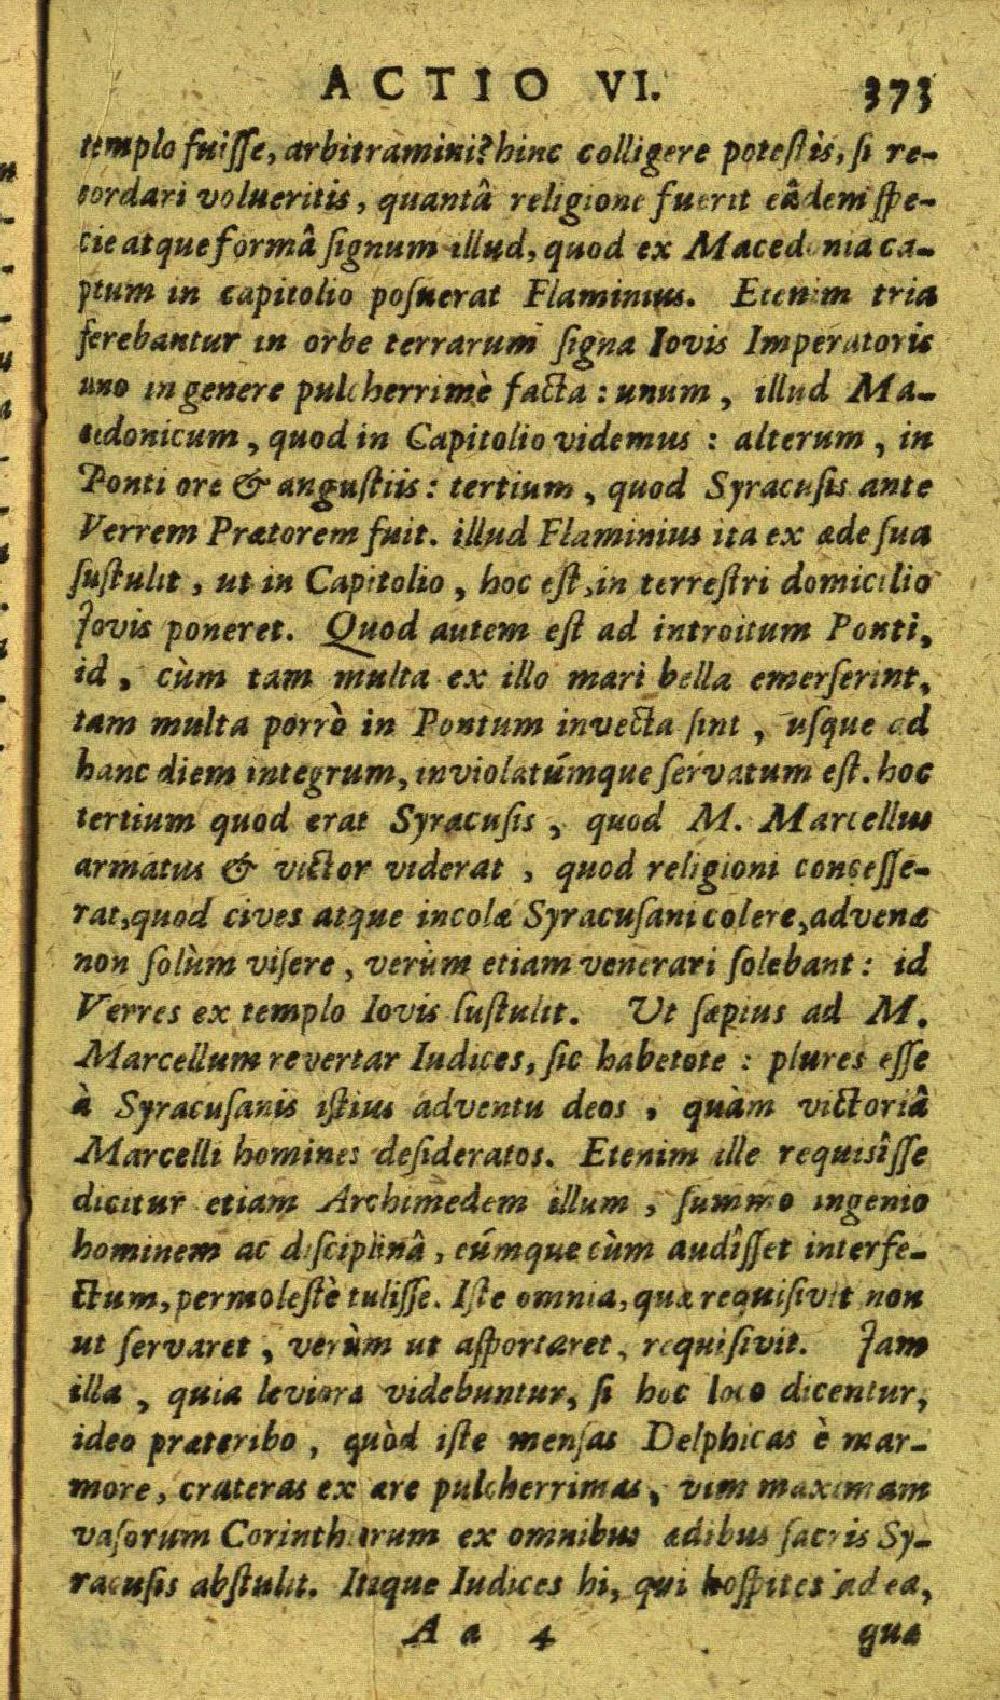 ACTIO VI. 373
templo fuiſſe, arbitramini? hinc colligere poteſtis, ſi re-
cordari volueritis, quantâ religione fuerit eâdem ſpe-
cie atque formâ ſignum illud, quod ex Macedonia ca-
ptum in capitolio poſuerat Flaminius. Etenim tria
ferebantur in orbe terrarum ſigna Iovis Imperatoris
uno in genere pulcherrimè facta: unum, illud Ma-
cedonicum, quod in Capitolio videmus: alterum, in
Ponti ore & anguſtiis: tertium, quod Syracuſis ante
Verrem Prætorem fuit. illud Flaminius ita ex æde ſua
ſuſtulit, ut in Capitolio, hoc eſt, in terreſtri domicilio
Jovis poneret. Quod autem eſt ad introitum Ponti,
id, cùm tam multa ex illo mari bella emerſerint,
tam multa porrò in Pontum invecta ſint, uſque ad
hanc diem integrum, inviolatúmque ſervatum eſt. hoc
tertium quod erat Syracuſis, quod M. Marcellus
armatus & victor viderat, quod religioni conceſſe-
rat, quod cives atque incolæ Syracuſani colere, advenæ
non ſolùm viſere, verùm etiam venerari ſolebant: id
Verres ex templo Iovis ſuſtulit. Ut ſæpius ad M.
Marcellum revertar Iudices, ſic habetote: plures eſſe
à Syracuſanis iſtius adventu deos, quàm victoriâ
Marcelli homines deſideratos. Etenim ille requisîſſe
dicitur etiam Archimedem illum, ſummo ingenio
hominem ac diſciplinâ, eúmque cùm audîſſet interfe-
ctum, permoleſtè tuliſſe. Iſte omnia, quæ requiſivit non
ut ſervaret, verùm ut aſportaret, requiſivit. Jam
illa, quia leviora videbuntur, ſi hoc loco dicentur,
ideo præteribo, quòd iſte menſas Delphicas è mar-
more, crateras ex ære pulcherrimas, vim maximam
vaſorum Corinthiorum ex omnibus ædibus ſacris Sy-
racuſis abſtulit. Itaque Iudices hi, qui hoſpites ad ea,
A a 4 quæ